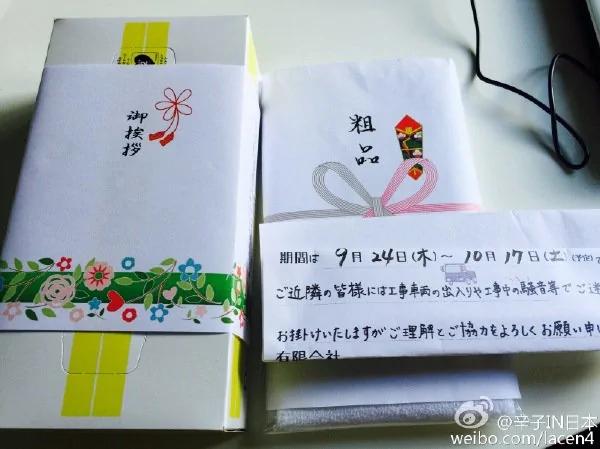 御挨拶
粗品
期間は 9月24日(木)～10月17日(土)(予定)で
ご近隣の皆様には工事車両の出入りや工事中の騒音等でご迷
お掛けいたしますがご理解とご協力をよろしくお願い申し
有限会社
@辛子IN日本
weibo.com/lacen4